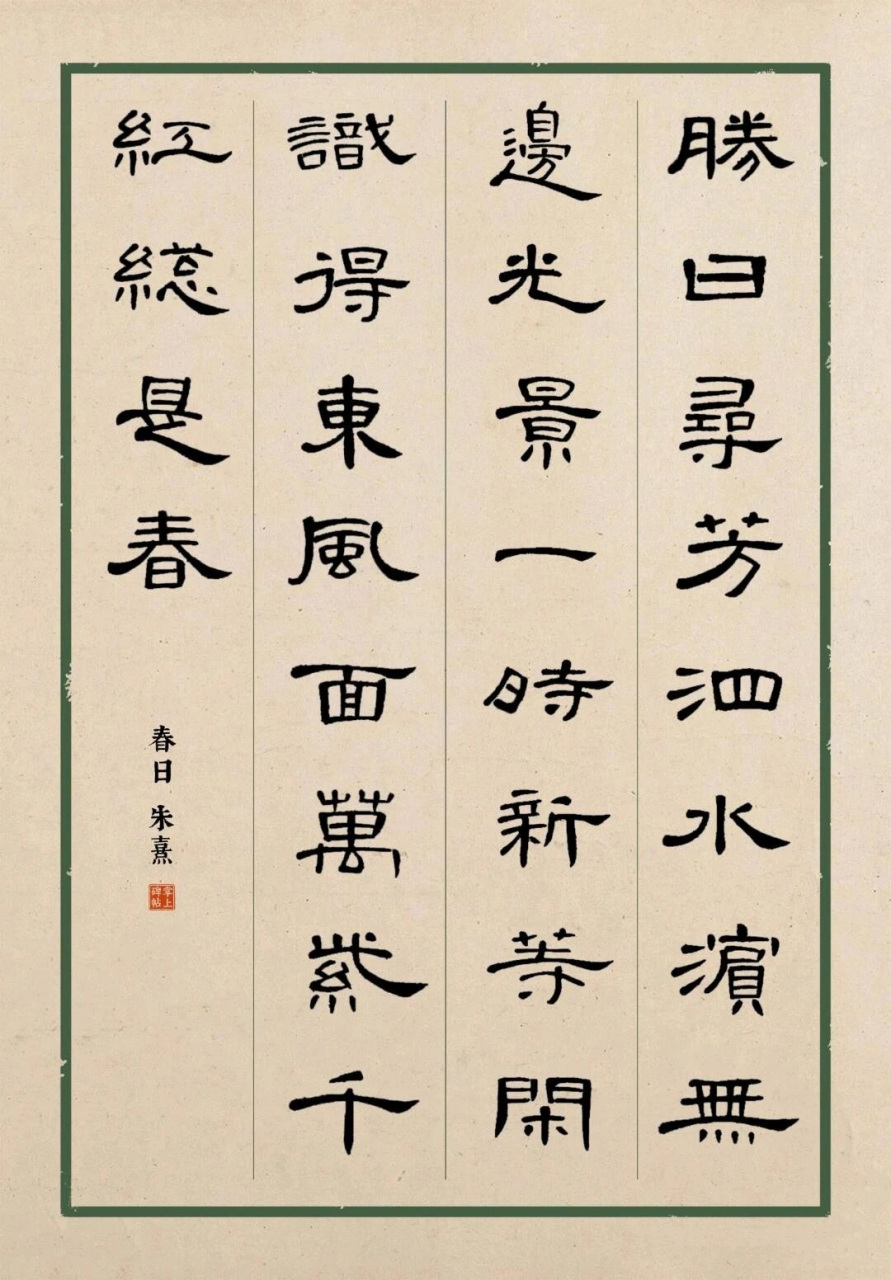 勝日尋芳泗水濱無
邊光景一時新等閑
識得東風面萬紫千
紅緫是春
春日 朱熹
掌上
碑帖